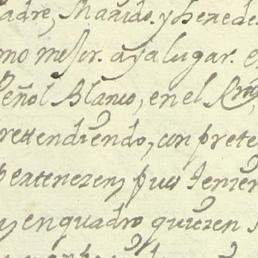 adre, Marido. y herede
mo mejor. aya lugar. e
eñol Blanco, en el
retendiendo, con prete
peatenezen, pues
y enquadro quiezen